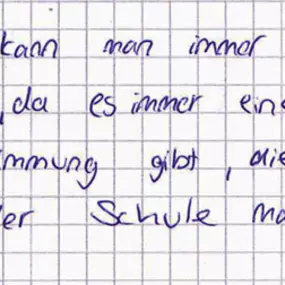 kann man immer
, da es immer eine
immung gibt, die
er Schule ma